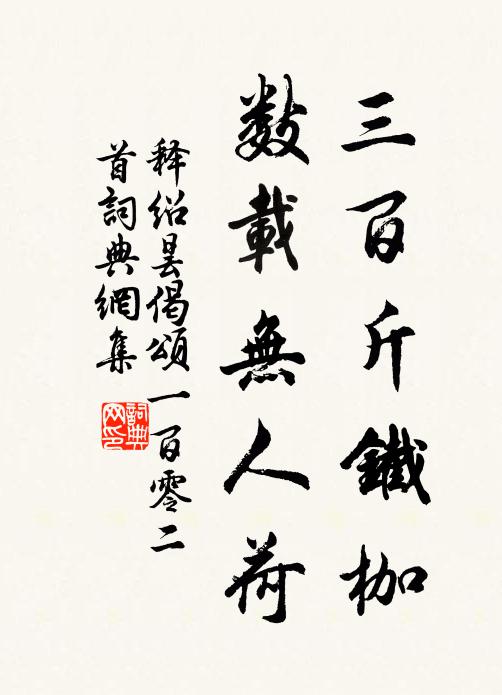 三百斤鐵枷
數載無人荷
释紹昙偈頌一百零二
首詞典網集
詞典
网印